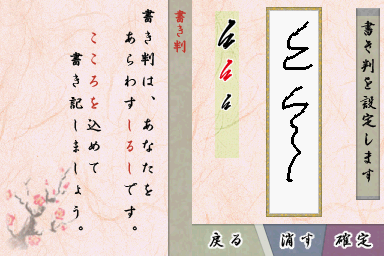 書き判を設定します
書き判
書き判は、あなたを
あらわすしるしです。
こころを込めて
書き記しましょう。
戻る
消す
確定